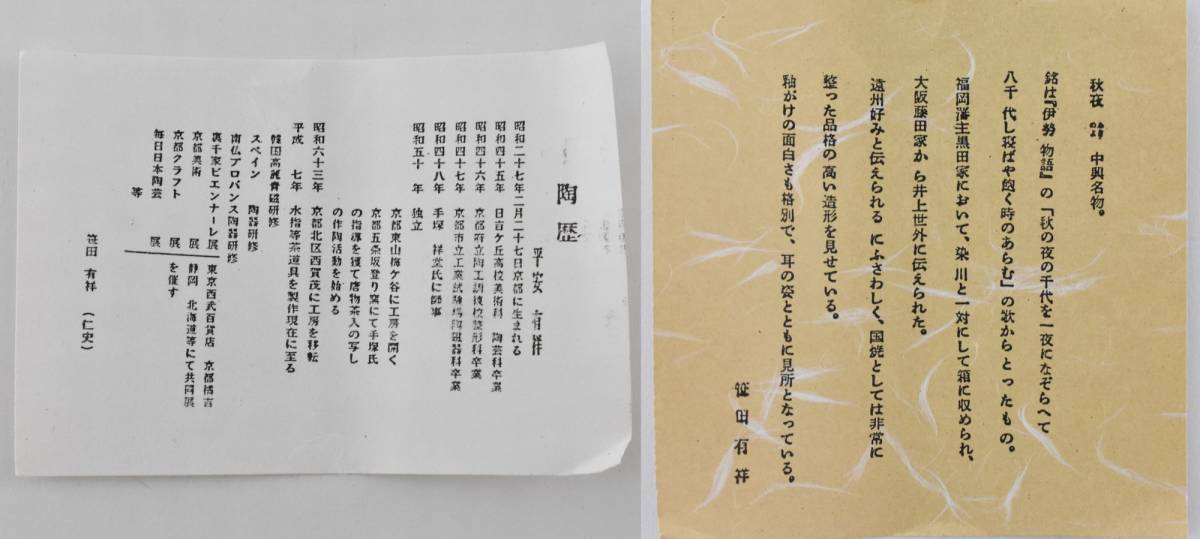 陶歴
平安 有祥
昭和二十七年二月二十七日京都に生まれる
昭和四十五年 日吉ケ丘高校美術科 陶芸科卒業
昭和四十六年 京都府立陶工訓練校整形科卒業
昭和四十七年 京都市立工業試験場陶磁器科卒業
昭和四十八年 手塚 祥堂氏に師事
昭和五十 年 独立
京都東山梅ケ谷に工房を開く
京都五条坂登り窯にて手塚氏
の指導を獲て唐物茶入の写し
の作陶活動を始める
昭和六十三年 京都北区西賀茂に工房を移転
平成 七年 水指等茶道具を製作現在に至る
韓国高麗青磁研修
スペイン 陶器研修
南仏プロバンス陶器研修
裏千家ビエンナーレ展
京都美術 展
京都クラフト 展
毎日日本陶芸 展
等
東京西武百貨店 京都橘吉
静岡 北海道等にて共同展
を催す
笹田 有祥 (仁史)
秋夜 中興名物。
銘は『伊勢物語』の「秋の夜の千代を一夜になぞらへて
八千代し寝ばや飽く時のあらむ」の歌からとったもの。
福岡藩主黒田家において、染川と一対にして箱に収められ、
大阪藤田家から井上世外に伝えられた。
遠州好みと伝えられるにふさわしく、国焼としては非常に
整った品格の高い造形を見せている。
釉がけの面白さも格別で、耳の姿とともに見所となっている。
笹田有祥